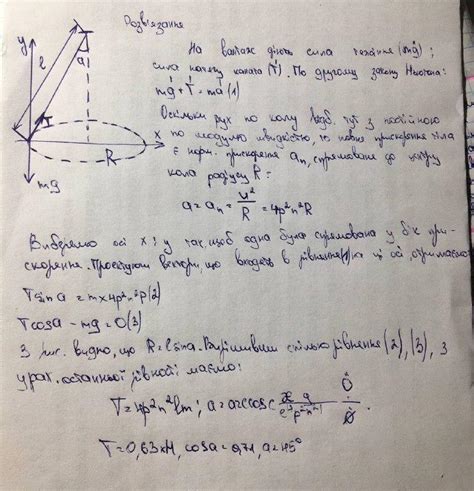 Розв'язання
На вантаж діють сила тяжіння (mg);
сила натягу каната (T). По другому закону Ньютона:
mg + T = ma (1)
Оскільки рух по колу відб. тут з постійною
по модулю швидкістю, то повне прискорення тіла
є норм. прискорення aₙ, спрямоване до центру
кола радіусу R =
a = aₙ = u²/R = 4p²n²R
Виберемо осі x і y так, щоб одна була спрямована у бік при-
скорення. Проєктуючи вектори, що входять в рівняння (1) на ці осі отримаємо:
T sin a = m x 4p²n² (2)
T cos a - mg = 0 (3)
З видно, що R = l sin a. рівняння (2), (3), з
урах. останньої рівності маємо:
T = 4p²n²lm; a = arccos
T = 0,63 кН, cos a = 0,71, a = 45°
y
l
a
T
x
R
mg